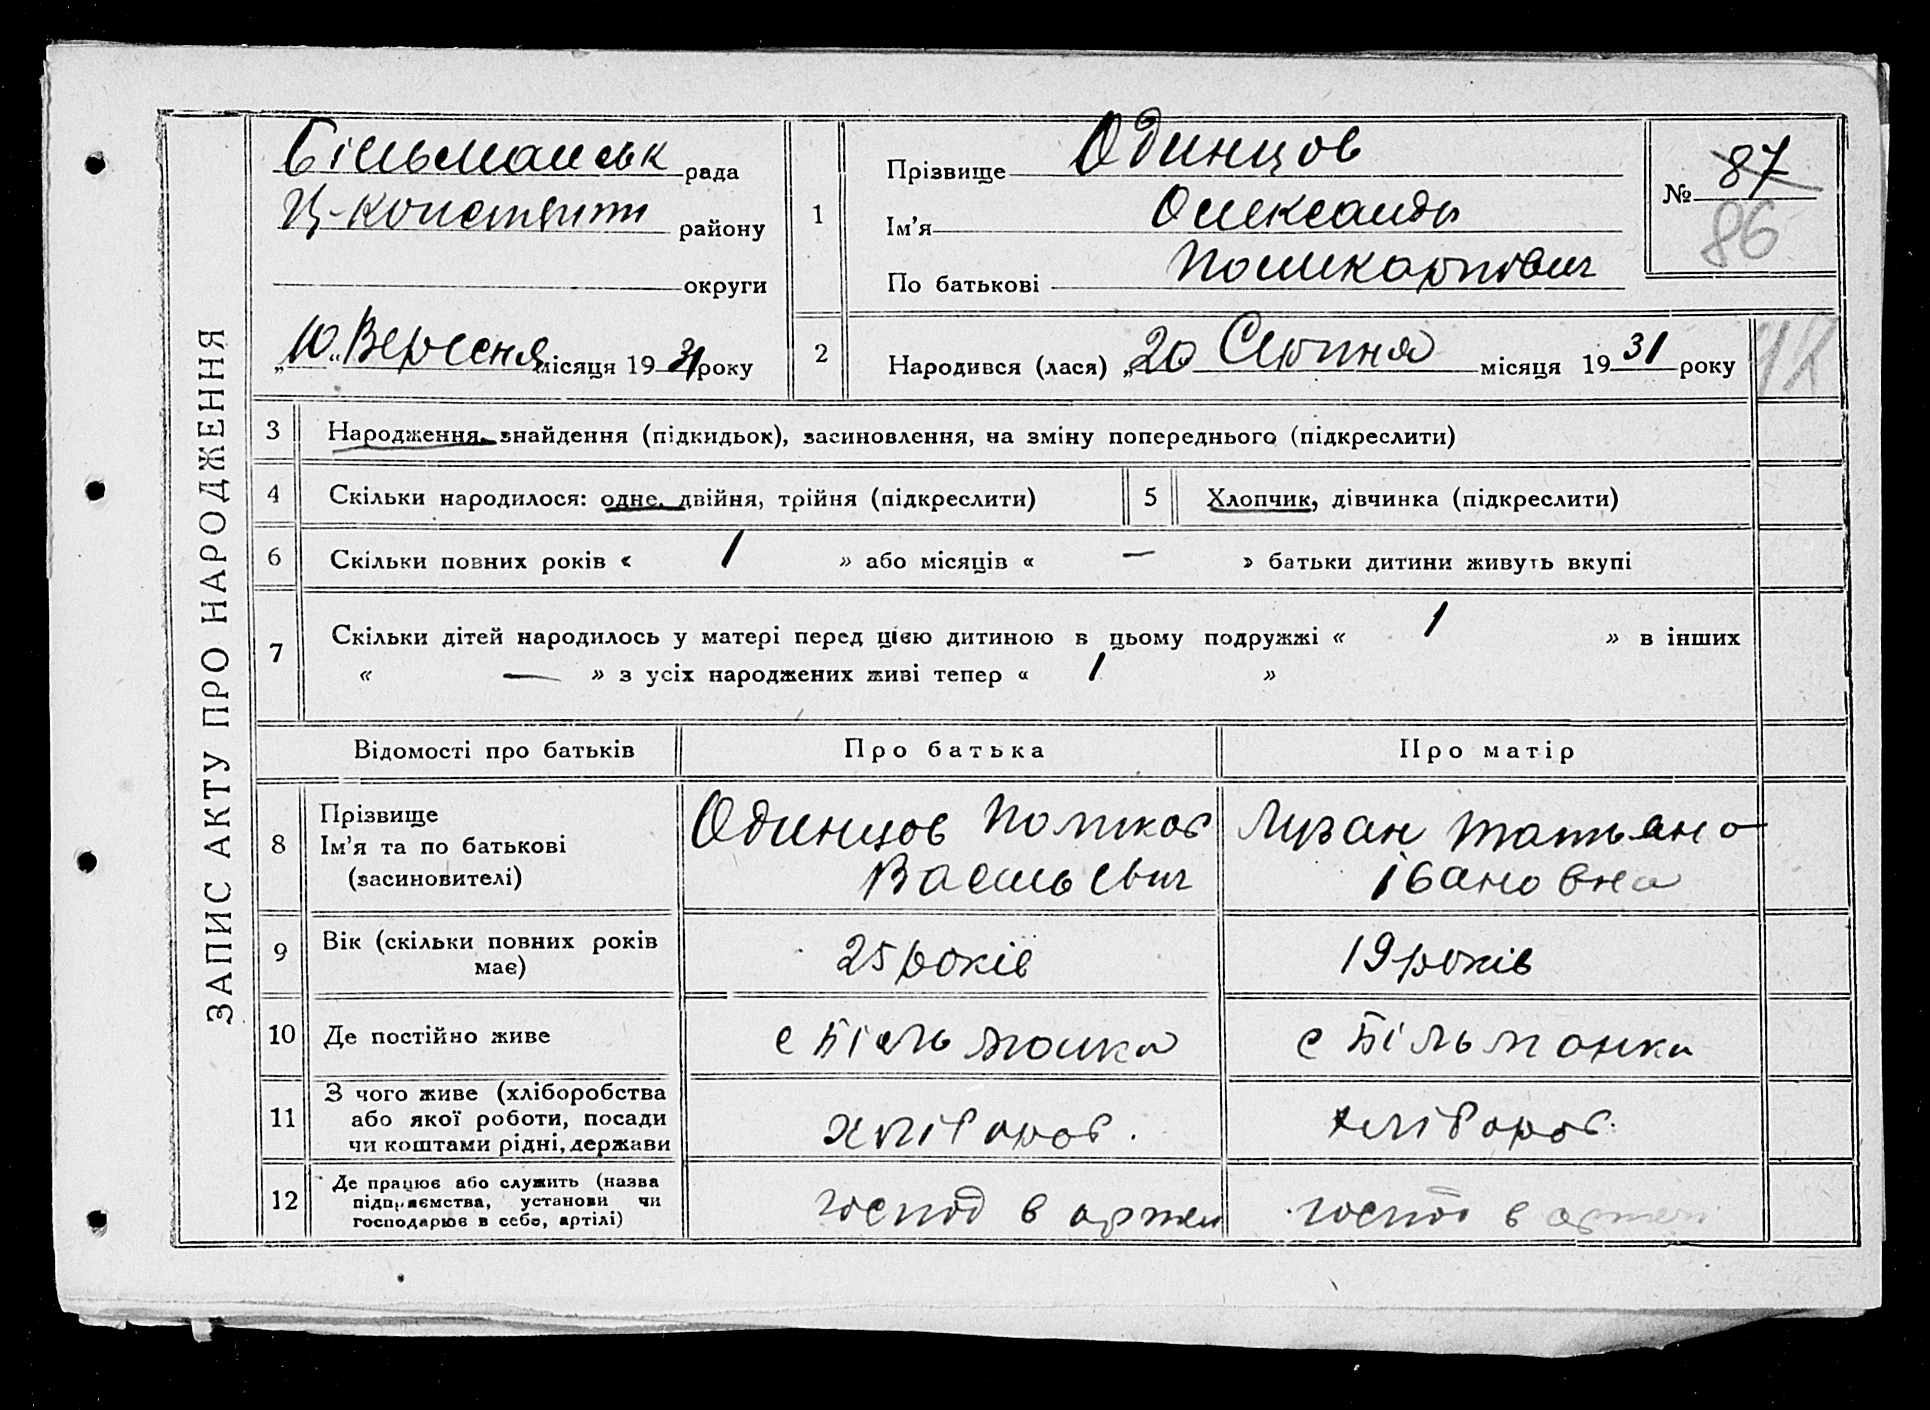 ЗАПИС АКТУ ПРО НАРОДЖЕННЯ
Більманськ рада
Ц-констянт району
округи
„10“ Вересня місяця 1931 року
1
Прізвище Одинцов
Ім’я Олександр
По батькові Поликарпович
№ 87
86
2
Народився (лася) „20 Серпня місяця 1931 року
3 Народження, знайдення (підкидьок), засиновлення, на зміну попереднього (підкреслити)
4 Скільки народилося: одне, двійня, трійня (підкреслити)
5 Хлопчик, дівчинка (підкреслити)
6 Скільки повних років « 1 » або місяців « — » батьки дитини живуть вкупі
7 Скільки дітей народилось у матері перед цією дитиною в цьому подружжі « 1 » в інших
« — » з усіх народжених живі тепер « 1 »
Відомості про батьків Про батька Про матір
8 Прізвище
Ім’я та по батькові
(засиновителі)
Одинцов Поликар
Васильевич
Татьяна
Івановна
9 Вік (скільки повних років
має)
25 років
19 років
10 Де постійно живе
с Більманка
с Більманка
11 З чого живе (хліборобства
або якої роботи, посади
чи коштами рідні, держави
хлібороб.
хлібороб.
12 Де працює або служить (назва
підприємства, установи чи
господарює в себе, артілі)
господ в артели
господ в артели